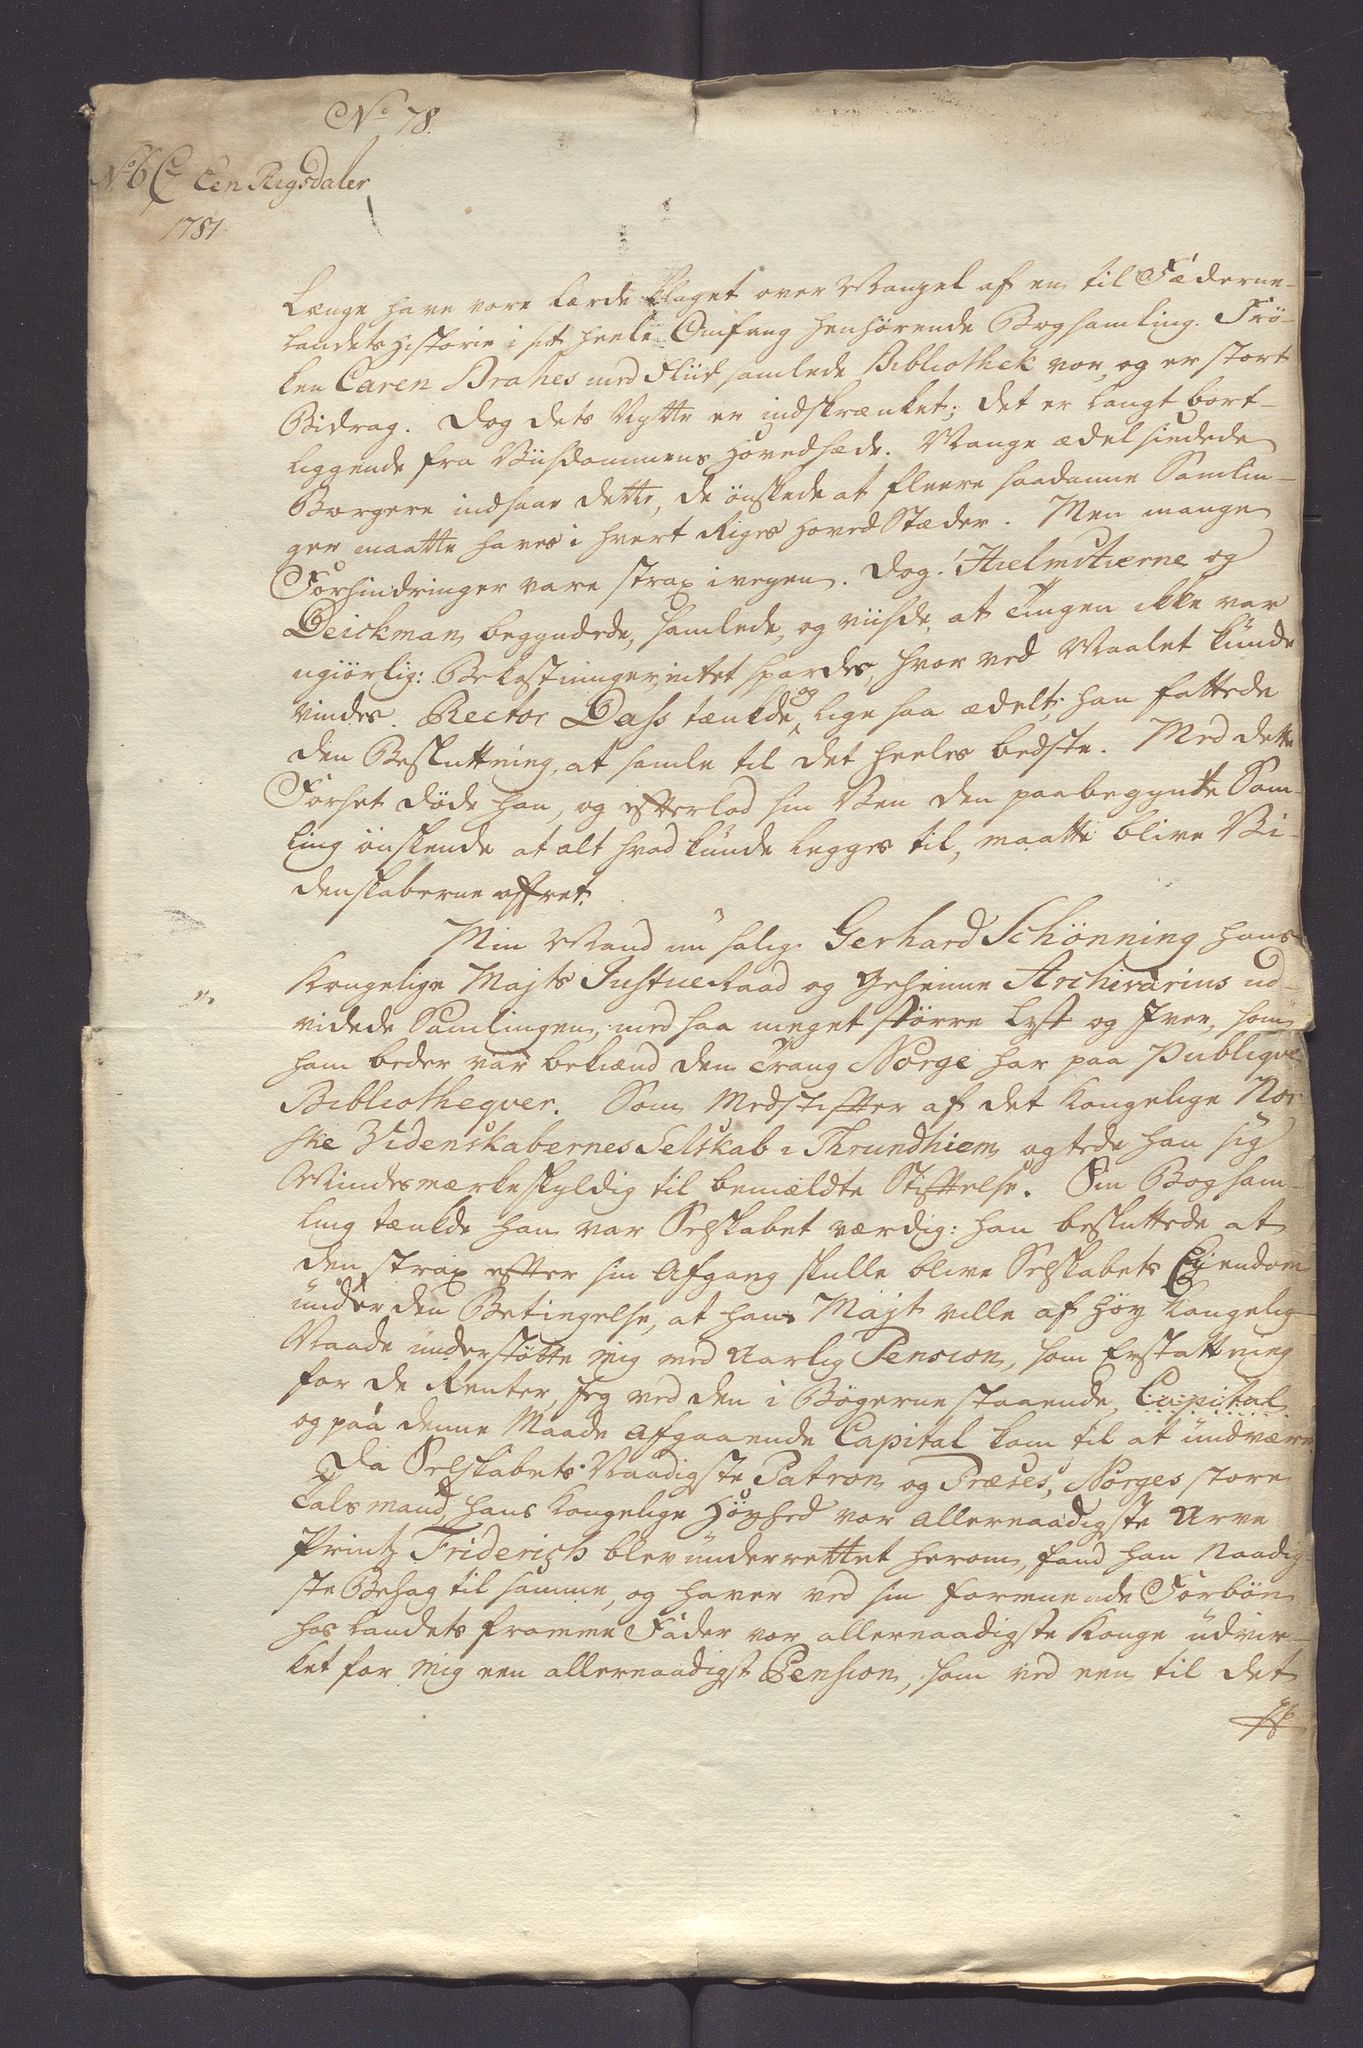 No 78.
No 6 C Een Rigsdaler
1781
Længe have vore Lærde klaget over Mangel af en til Fæderne-
landets Historie i sit heele Omfang henhørende Bogsamling. Frø-
ken Caren Brahes med Fliid samlede Bibliothek var, og er stort
Bidrag. Dog dets Nytte er indskrænket; det er langt bort-
liggende fra Viisdommens Hovedsæde. Mange ædelsindede
Borgere indsaae dette, de ønskede at fleere saadanne Samlin-
ger maatte haves i hvert Riges Hoved Stæder. Men mange
Forhindringer vare strax i vegen. Dog! Hielmstierne og
Deickman begyndede, samlede, og viisde, at Tingen ikke var
ugiørlig: Bekostninger intet spardes, hvor ved Maalet kunde
vindes. Rector Dass tænkde og lige saa ædelt; han fattede
den Besluttning, at samle til det heeles bedste. Med dette
Forset døde han, og efterlod sin Ven den paabegyndte Sam-
ling ønskende at alt hvad kunde legges til, maatte blive Vi-
denskaberne offret.
Min Mand nu salig Gerhard Schönning hans
Kongelige Majts Justice Raad og Geheime Archivarius ud-
videde Samlingen, med saa meget større Lyst og Iver, som
ham beder var bekiend den Trang Norge har paa Publique
Bibliothequer. Som Medstifter af det Kongelige Nor
ske Videnskabernes Selskab i Thrundhiem agtede han sig
Mindesmærke skyldig til bemældte Stiftelse. Sin Bogsam-
ling tænkde han var Selskabet værdig: han besluttede at
den strax efter sin Afgang skulle blive Selskabets Eiendom
under den Betingelse, at hans Majt ville af Høy Kongelig
Naade understøtte mig med aarlig Pension, som Erstattning
for de Renter, jeg ved den i Bøgerne staaende, Capital
og paa denne Maade afgaaende Capital kom til at undvære
Da Selskabets Naadigste Patron og Præses, Norges store
Talsmand, hans Kongelige Høyhed vor allernaadigste Arve
Printz Friderich blev underrettet herom, fand han Naadig-
ste Behag til samme, og haver ved sin formaaende Forbøn
hos Landets fromme Fader vor allernaadigste Konge udvir-
ket for mig een allernaadigst Pension, som ved een til det